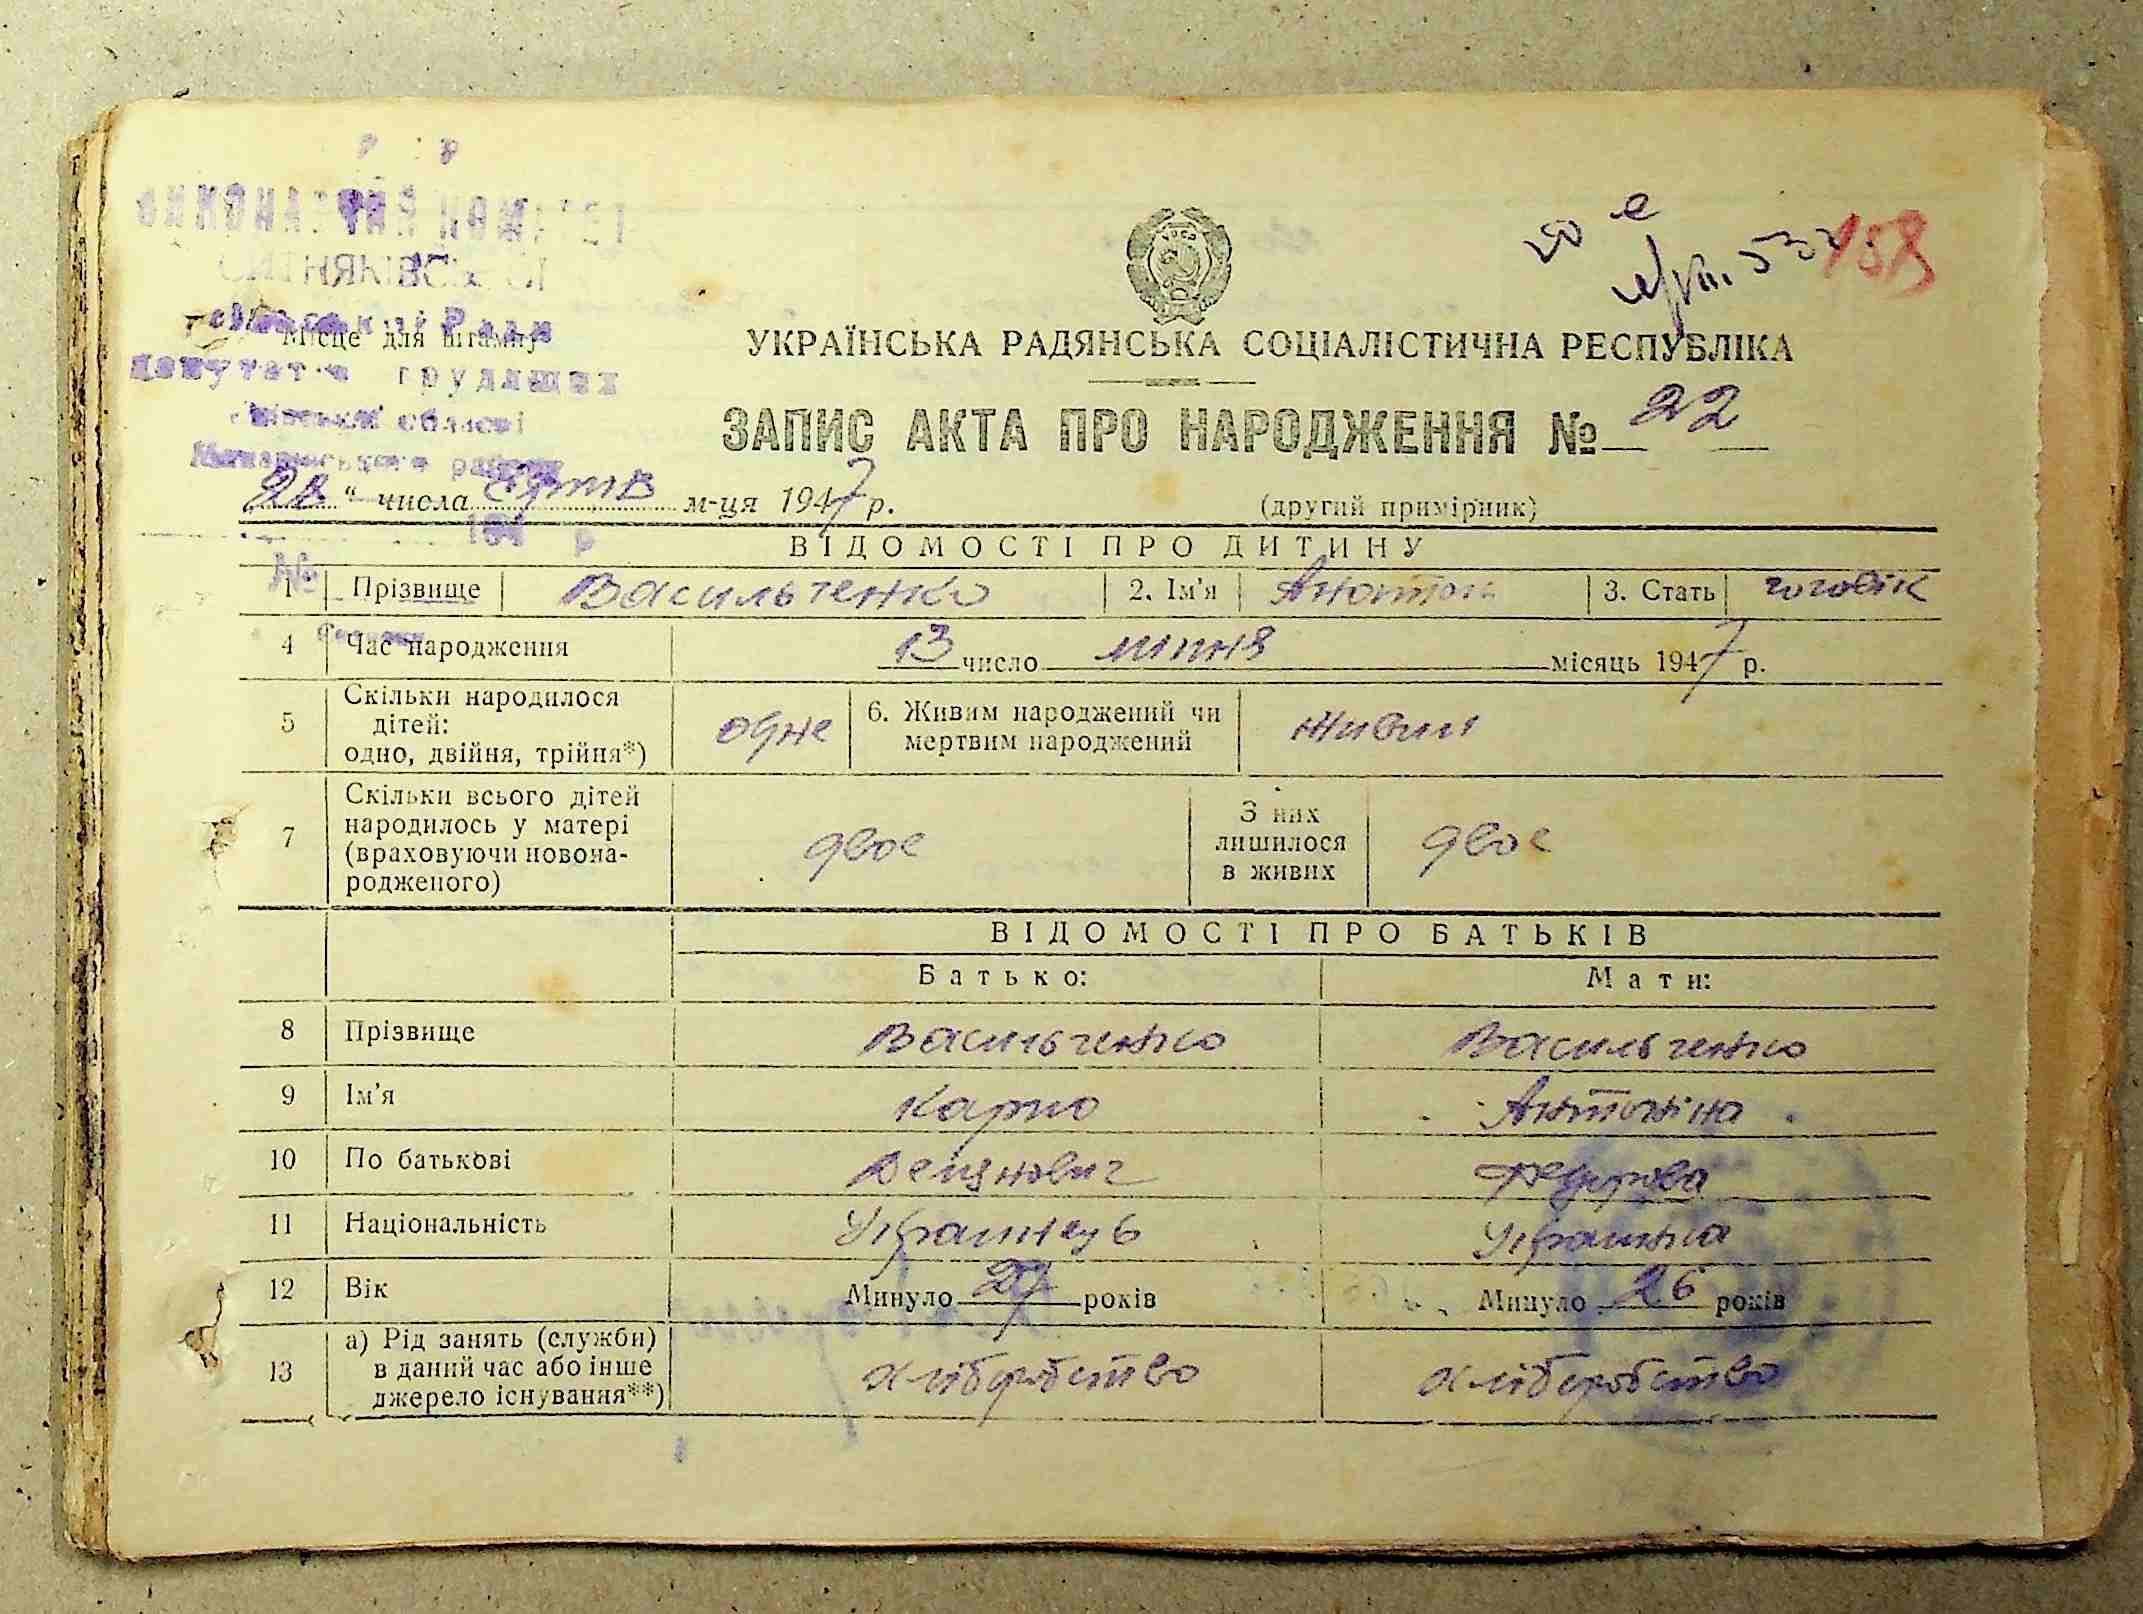 Місце для штампу
УКРАЇНСЬКА РАДЯНСЬКА СОЦІАЛІСТИЧНА РЕСПУБЛІКА
ЗАПИС АКТА ПРО НАРОДЖЕННЯ № 22
числа м-ця 1947 р. (другий примірник)
ВІДОМОСТІ ПРО ДИТИНУ
1 Прізвище Васильченко 2. Ім'я Анатон 3. Стать чоловік
4 Час народження 13 число липня місяць 1947 р.
5 Скільки народилося дітей: одно, двійня, трійня*) одне 6. Живим народжений чи мертвим народжений живим
7 Скільки всього дітей народилось у матері (враховуючи новонародженого) двоє З них лишилося в живих двоє
ВІДОМОСТІ ПРО БАТЬКІВ
Батько: Мати:
8 Прізвище Васильченко Васильченко
9 Ім'я Карпо Антоніна
10 По батькові
11 Національність Українець Українка
12 Вік Минуло років Минуло 26 років
13 а) Рід занять (служби) в даний час або інше джерело існування**) хліборобство хліборобство